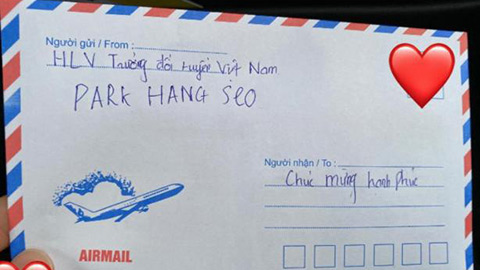 Người gửi / From :
HLV Trưởng đội tuyển Việt Nam
PARK HANG SEO
Người nhận / To :
Chúc mừng hạnh phúc
AIRMAIL